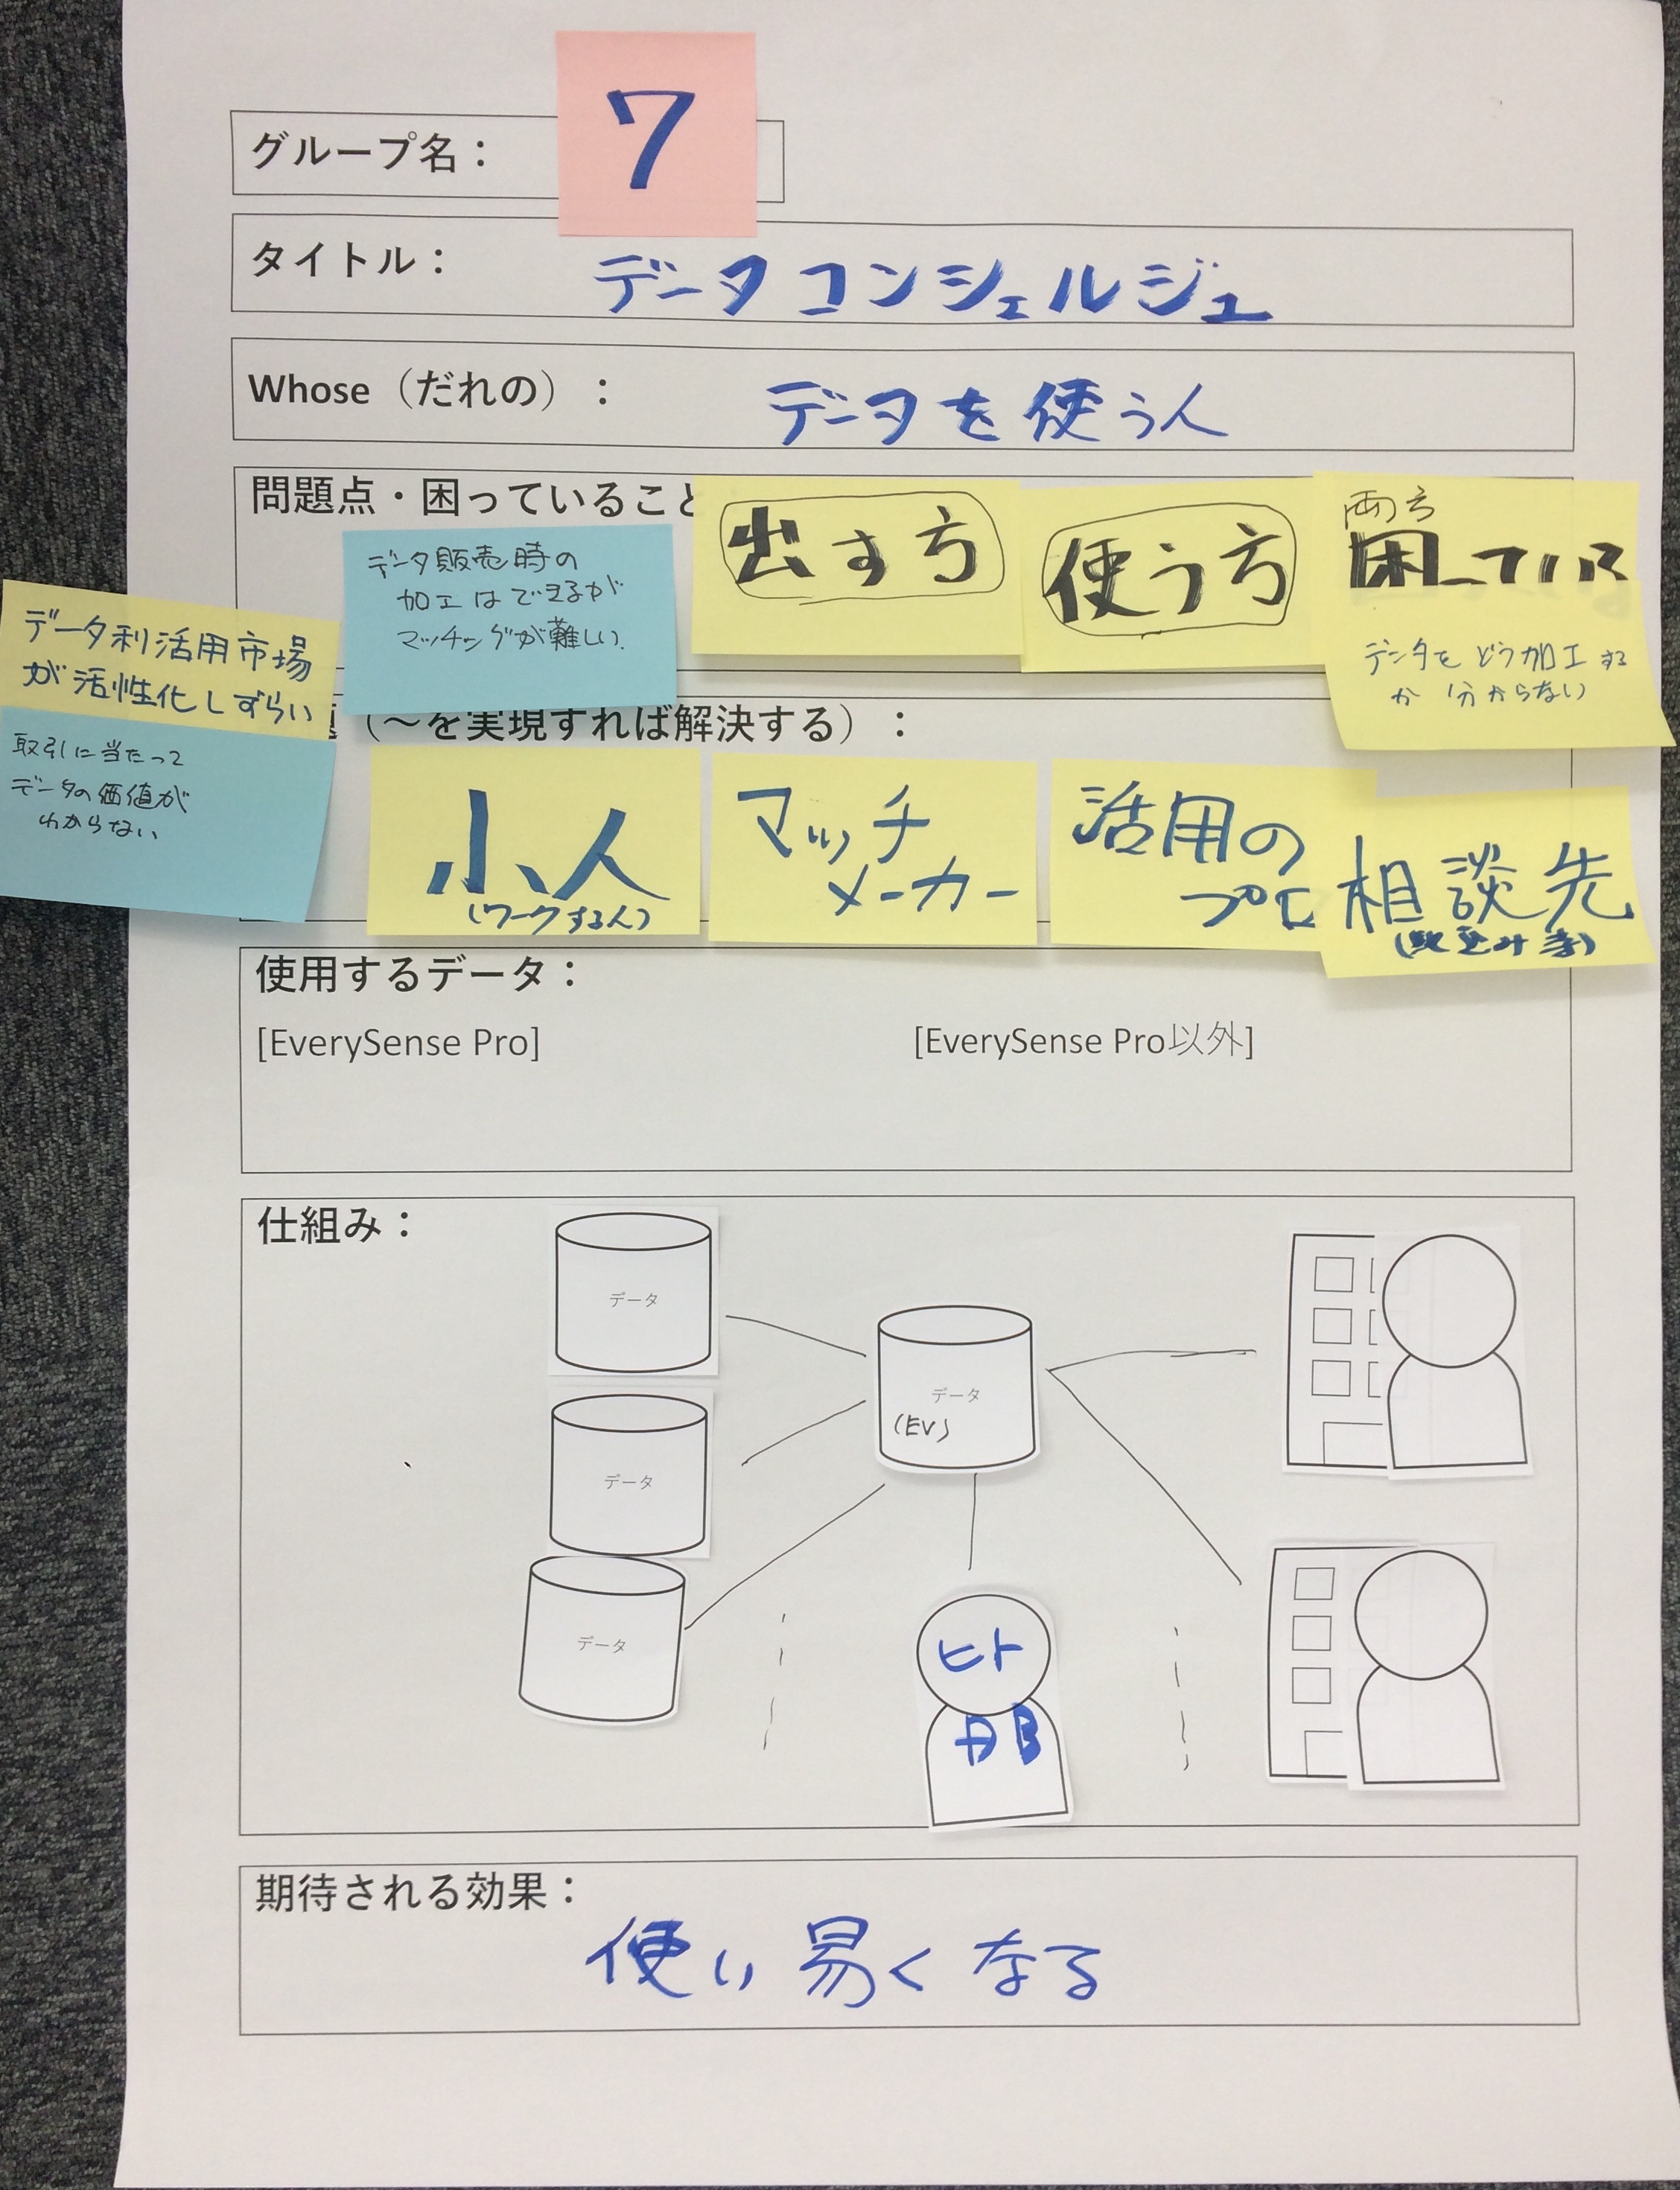 グループ名：
7
タイトル：
データコンシェルジュ
Whose（だれの）：
データを使う人
問題点・困っていること
出す方
使う方
両方
困っている
データをどう加工する
か 分からない
データ販売時の
加工はできるが
マッチングが難しい.
データ利活用市場
が活性化しずらい
取引に当たって
データの価値が
わからない
（～を実現すれば解決する）：
小人
(ワークする人)
マッチ
メーカー
活用の
プロ
相談先
使用するデータ：
[EverySense Pro]
[EverySense Pro以外]
仕組み：
データ
データ
データ
データ
(EV)
ヒト
DB
期待される効果：
使い易くなる